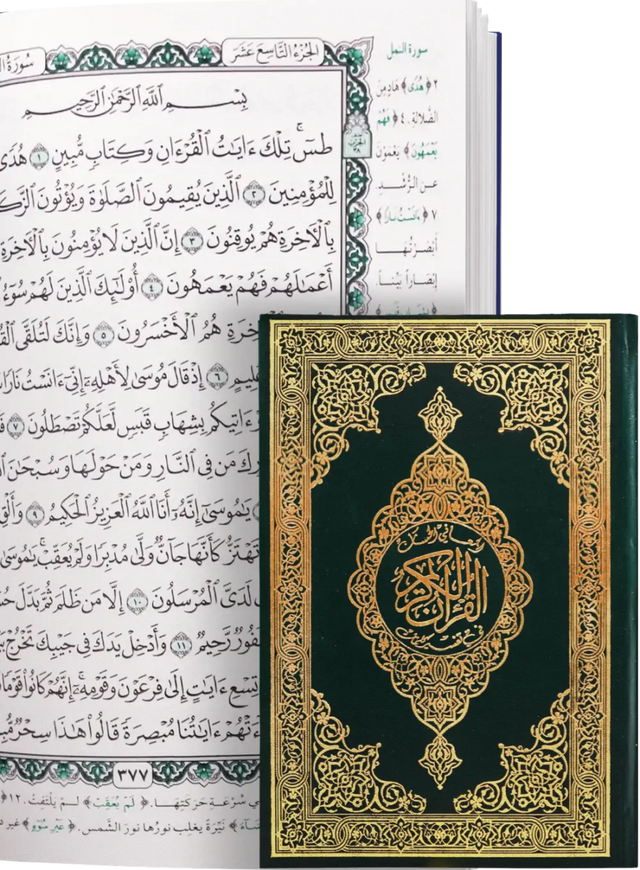 سُورَةُ ال
الجُزْءُ التَّاسِعَ عَشَرَ
بِسْمِ ٱللَّهِ ٱلرَّحْمَٰنِ ٱلرَّحِيمِ
طسٓ ۚ تِلْكَ ءَايَٰتُ ٱلْقُرْءَانِ وَكِتَابٍ مُّبِينٍ ١ هُدًى
لِلْمُؤْمِنِينَ ٢ ٱلَّذِينَ يُقِيمُونَ ٱلصَّلَوٰةَ وَيُؤْتُونَ ٱلزَّكَ
بِٱلْءَاخِرَةِ هُمْ يُوقِنُونَ ٣ إِنَّ ٱلَّذِينَ لَا يُؤْمِنُونَ بِٱلْءَاخِرَةِ
أَعْمَٰلَهُمْ فَهُمْ يَعْمَهُونَ ٤ أُو۟لَٰٓئِكَ ٱلَّذِينَ لَهُمْ سُوٓءُ
خِرَةِ هُمُ ٱلْأَخْسَرُونَ ٥ وَإِنَّكَ لَتُلَقَّى ٱلْقُ
عَلِيمٍ ٦ إِذْ قَالَ مُوسَىٰ لِأَهْلِهِۦٓ إِنِّىٓ ءَانَسْتُ نَارًا سَ
ءَاتِيكُم بِشِهَابٍ قَبَسٍ لَّعَلَّكُمْ تَصْطَلُونَ ٧ فَ
رِكَ مَن فِى ٱلنَّارِ وَمَنْ حَوْلَهَا وَسُبْحَٰنَ ٱ
يَٰمُوسَىٰٓ إِنَّهُۥٓ أَنَا ٱللَّهُ ٱلْعَزِيزُ ٱلْحَكِيمُ ٩ وَأَلْقِ
تَهْتَزُّ كَأَنَّهَا جَآنٌّ وَلَّىٰ مُدْبِرًا وَلَمْ يُعَقِّبْ ۚ يَٰمُوسَىٰ
لَدَىَّ ٱلْمُرْسَلُونَ ١٠ إِلَّا مَن ظَلَمَ ثُمَّ بَدَّلَ حُسْ
فُورٌ رَّحِيمٌ ١١ وَأَدْخِلْ يَدَكَ فِى جَيْبِكَ تَخْرُجْ بَيْ
تِسْعِ ءَايَٰتٍ إِلَىٰ فِرْعَوْنَ وَقَوْمِهِۦٓ ۚ إِنَّهُمْ كَانُوا۟ قَوْمًا
ءَتْهُمْ ءَايَٰتُنَا مُبْصِرَةً قَالُوا۟ هَٰذَا سِحْرٌ مُّبِ
٣٧٧
سورة النمل
٢ ﴿هُدًى﴾ هَادٍ مِنَ
الضَّلَالَةِ. ٤ ﴿فَهُمْ
يَعْمَهُونَ﴾ يَعْمَوْنَ
عَنِ الرُّشْدِ.
٧ ﴿ءَانَسْتُ نَارًا﴾
أَبْصَرْتُهَا
إِبْصَارًا بَيِّنًا.
في سُرْعَةِ حَرَكَتِهَا. ﴿لَمْ يُعَقِّبْ﴾ لَمْ يَلْتَفِتْ. ١٢
نَيِّرَةً يَغْلِبُ نورُها نورَ الشَّمسِ. ﴿غَيْرِ سُوٓءٍ﴾ غير
القرآن الكريم